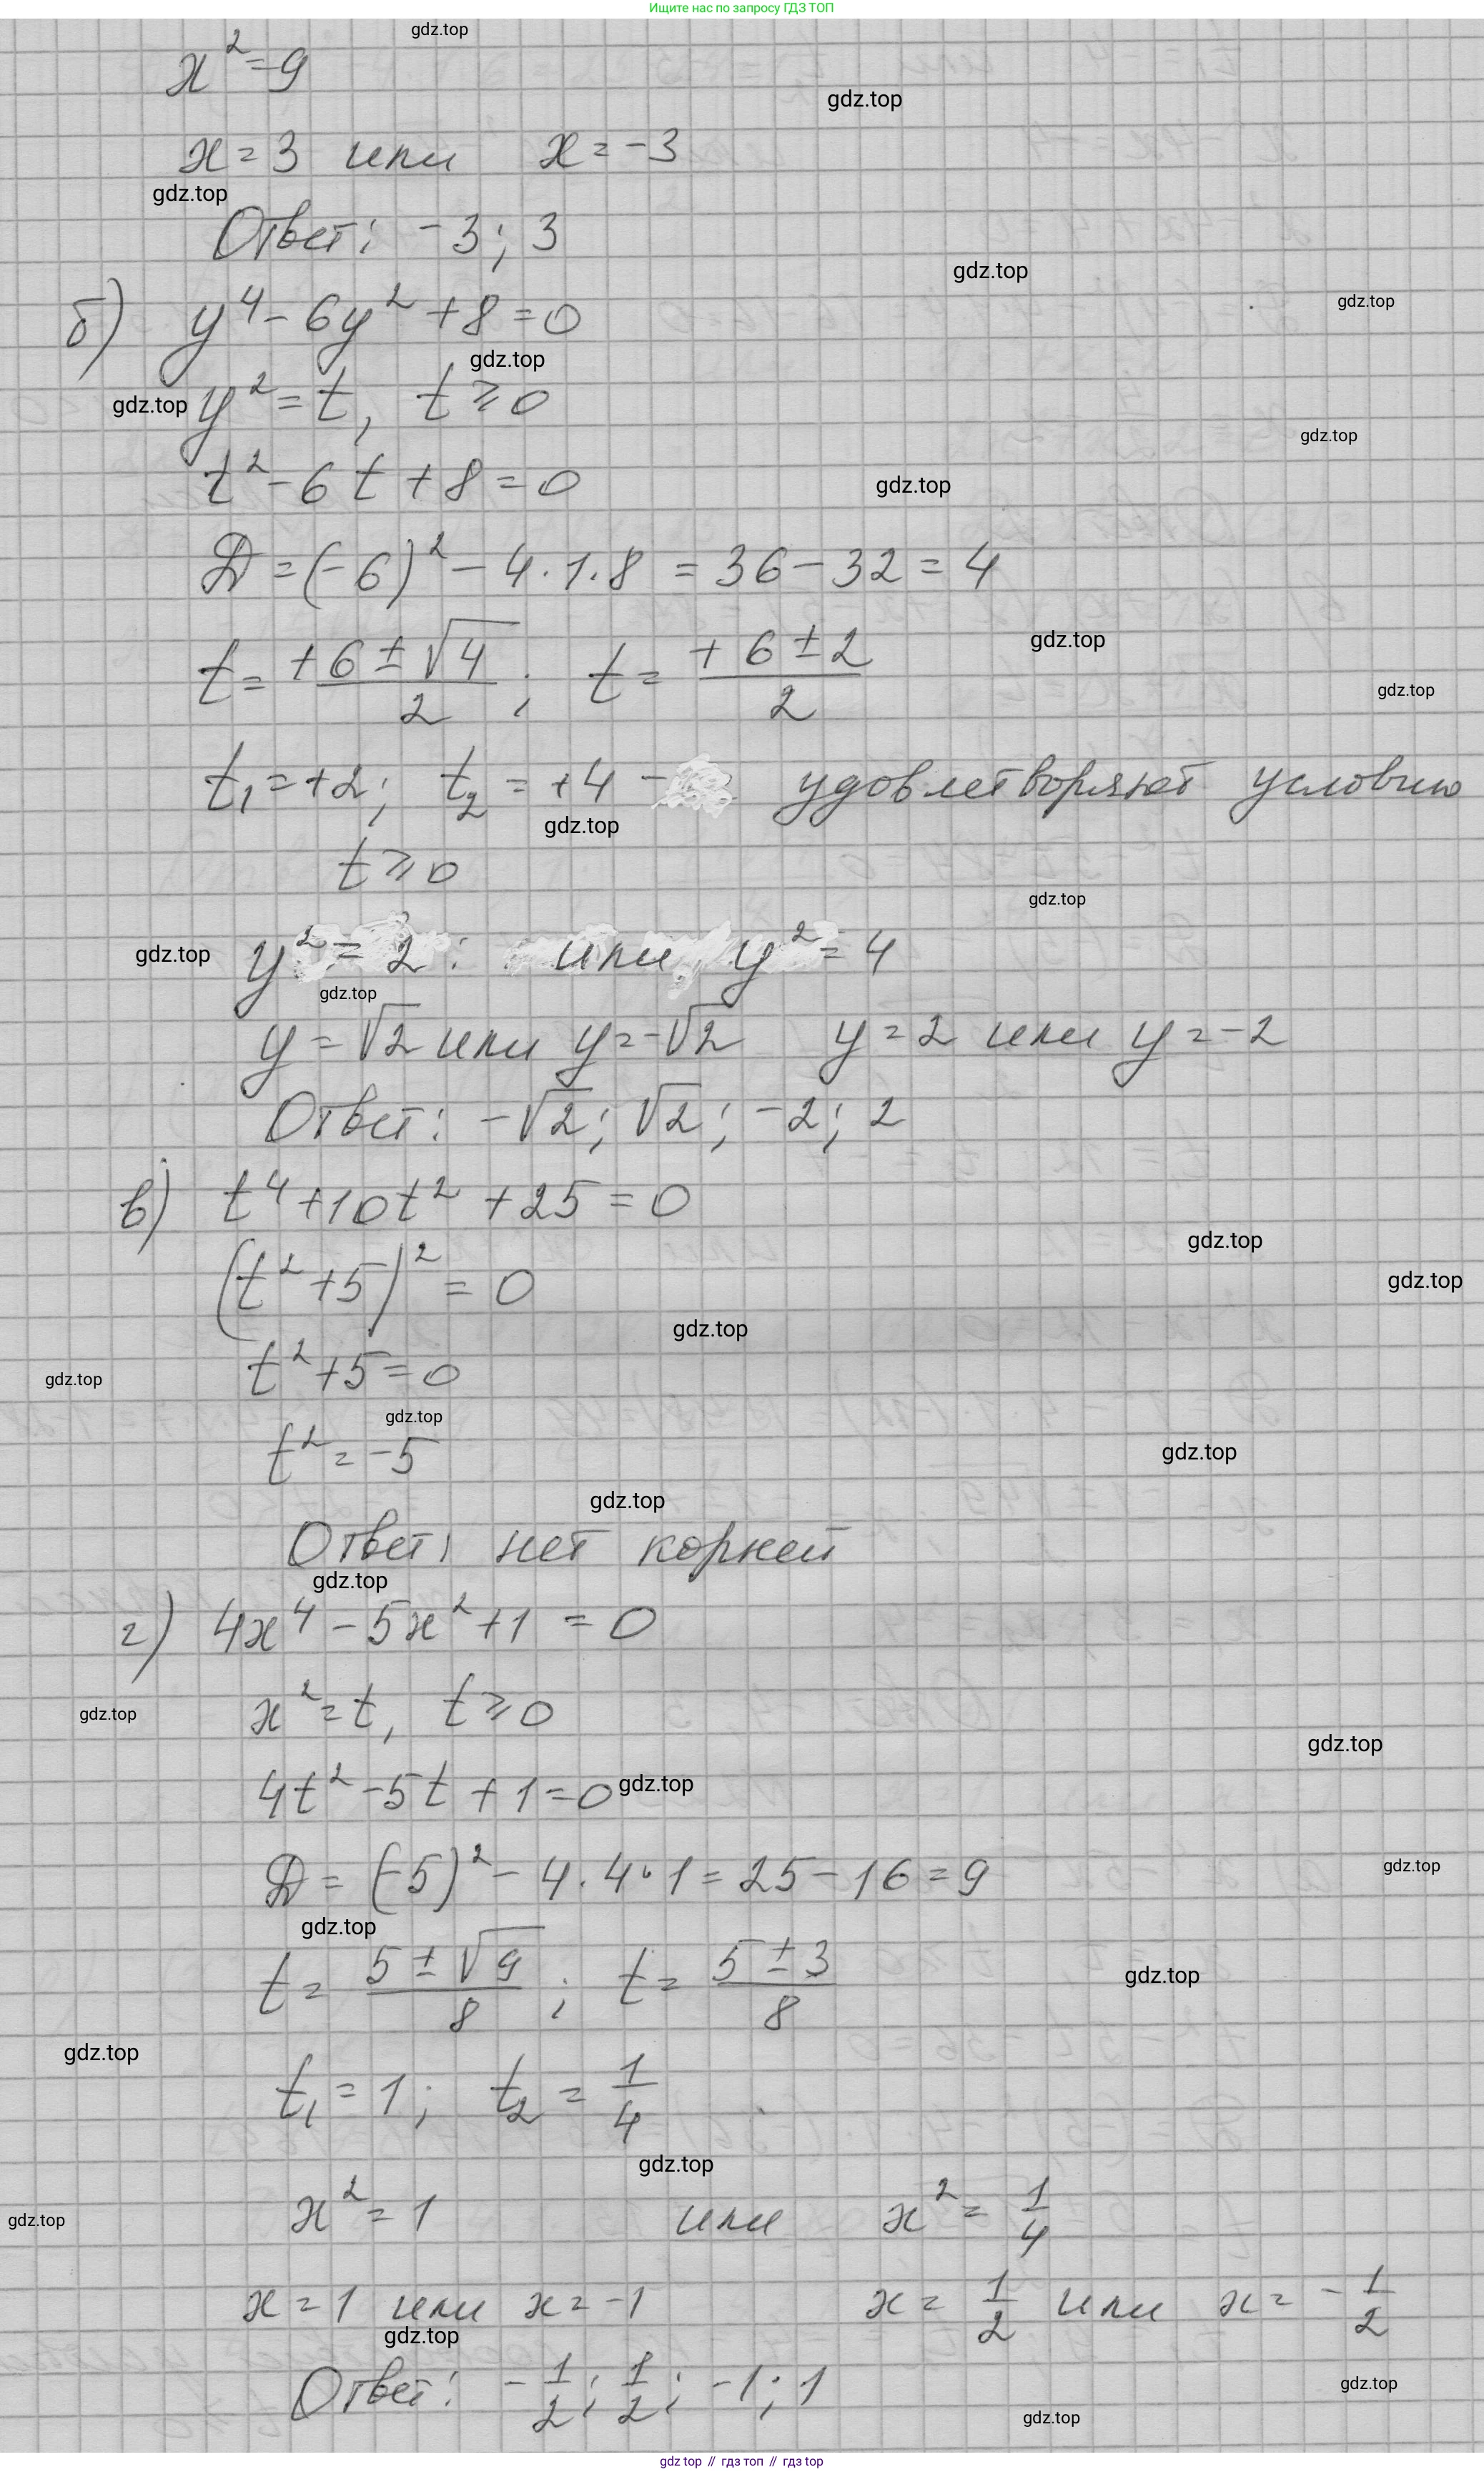 Ищите нас по запросу ГДЗ ТОП
gdz.top
x² = 9
gdz.top
x = 3 или x = -3
gdz.top
Ответ: -3; 3
gdz.top
gdz.top
б) y⁴ - 6y² + 8 = 0
gdz.top
gdz.top
y² = t, t ⩾ 0
gdz.top
t² - 6t + 8 = 0
gdz.top
D = (-6)² - 4·1·8 = 36 - 32 = 4
gdz.top
t = +6 ± √4 / 2 ; t = +6 ± 2 / 2
gdz.top
t₁ = +2; t₂ = +4 - удовлетворяют условию
gdz.top
t ⩾ 0
gdz.top
gdz.top
y² = 2 : или y² = 4
gdz.top
y = √2 или y = -√2 y = 2 или y = -2
Ответ: -√2; √2; -2; 2
в) t⁴ + 10t² + 25 = 0
gdz.top
(t² + 5)² = 0
gdz.top
gdz.top
t² + 5 = 0
gdz.top
gdz.top
t² = -5
gdz.top
gdz.top
Ответ: нет корней
gdz.top
г) 4x⁴ - 5x² + 1 = 0
x² = t, t ⩾ 0
gdz.top
gdz.top
4t² - 5t + 1 = 0
gdz.top
D = (-5)² - 4·4·1 = 25 - 16 = 9
gdz.top
gdz.top
t = 5 ± √9 / 8 ; t = 5 ± 3 / 8
gdz.top
gdz.top
t₁ = 1; t₂ = 1/4
gdz.top
x² = 1 или x² = 1/4
gdz.top
x = 1 или x = -1 x = 1/2 или x = -1/2
gdz.top
Ответ: -1/2; 1/2; -1; 1
gdz.top
gdz.top
gdz top // гдз топ // гдз top